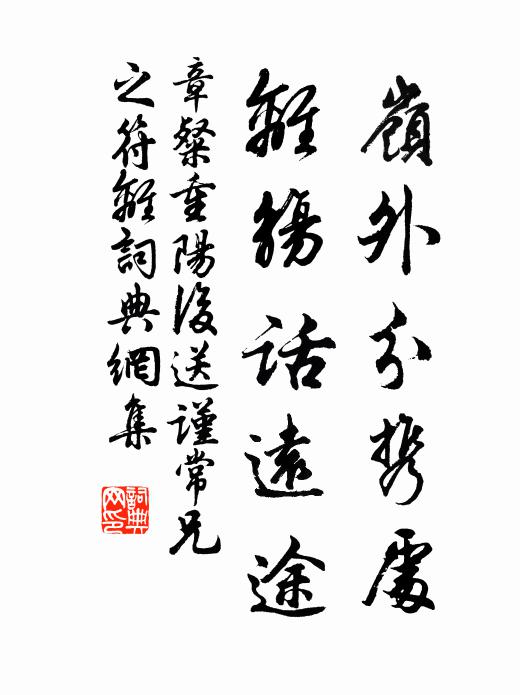 嶺外分携處
離觴話遠途
章粲重陽後送謹常兄
之符離詞典網集
詞典網印